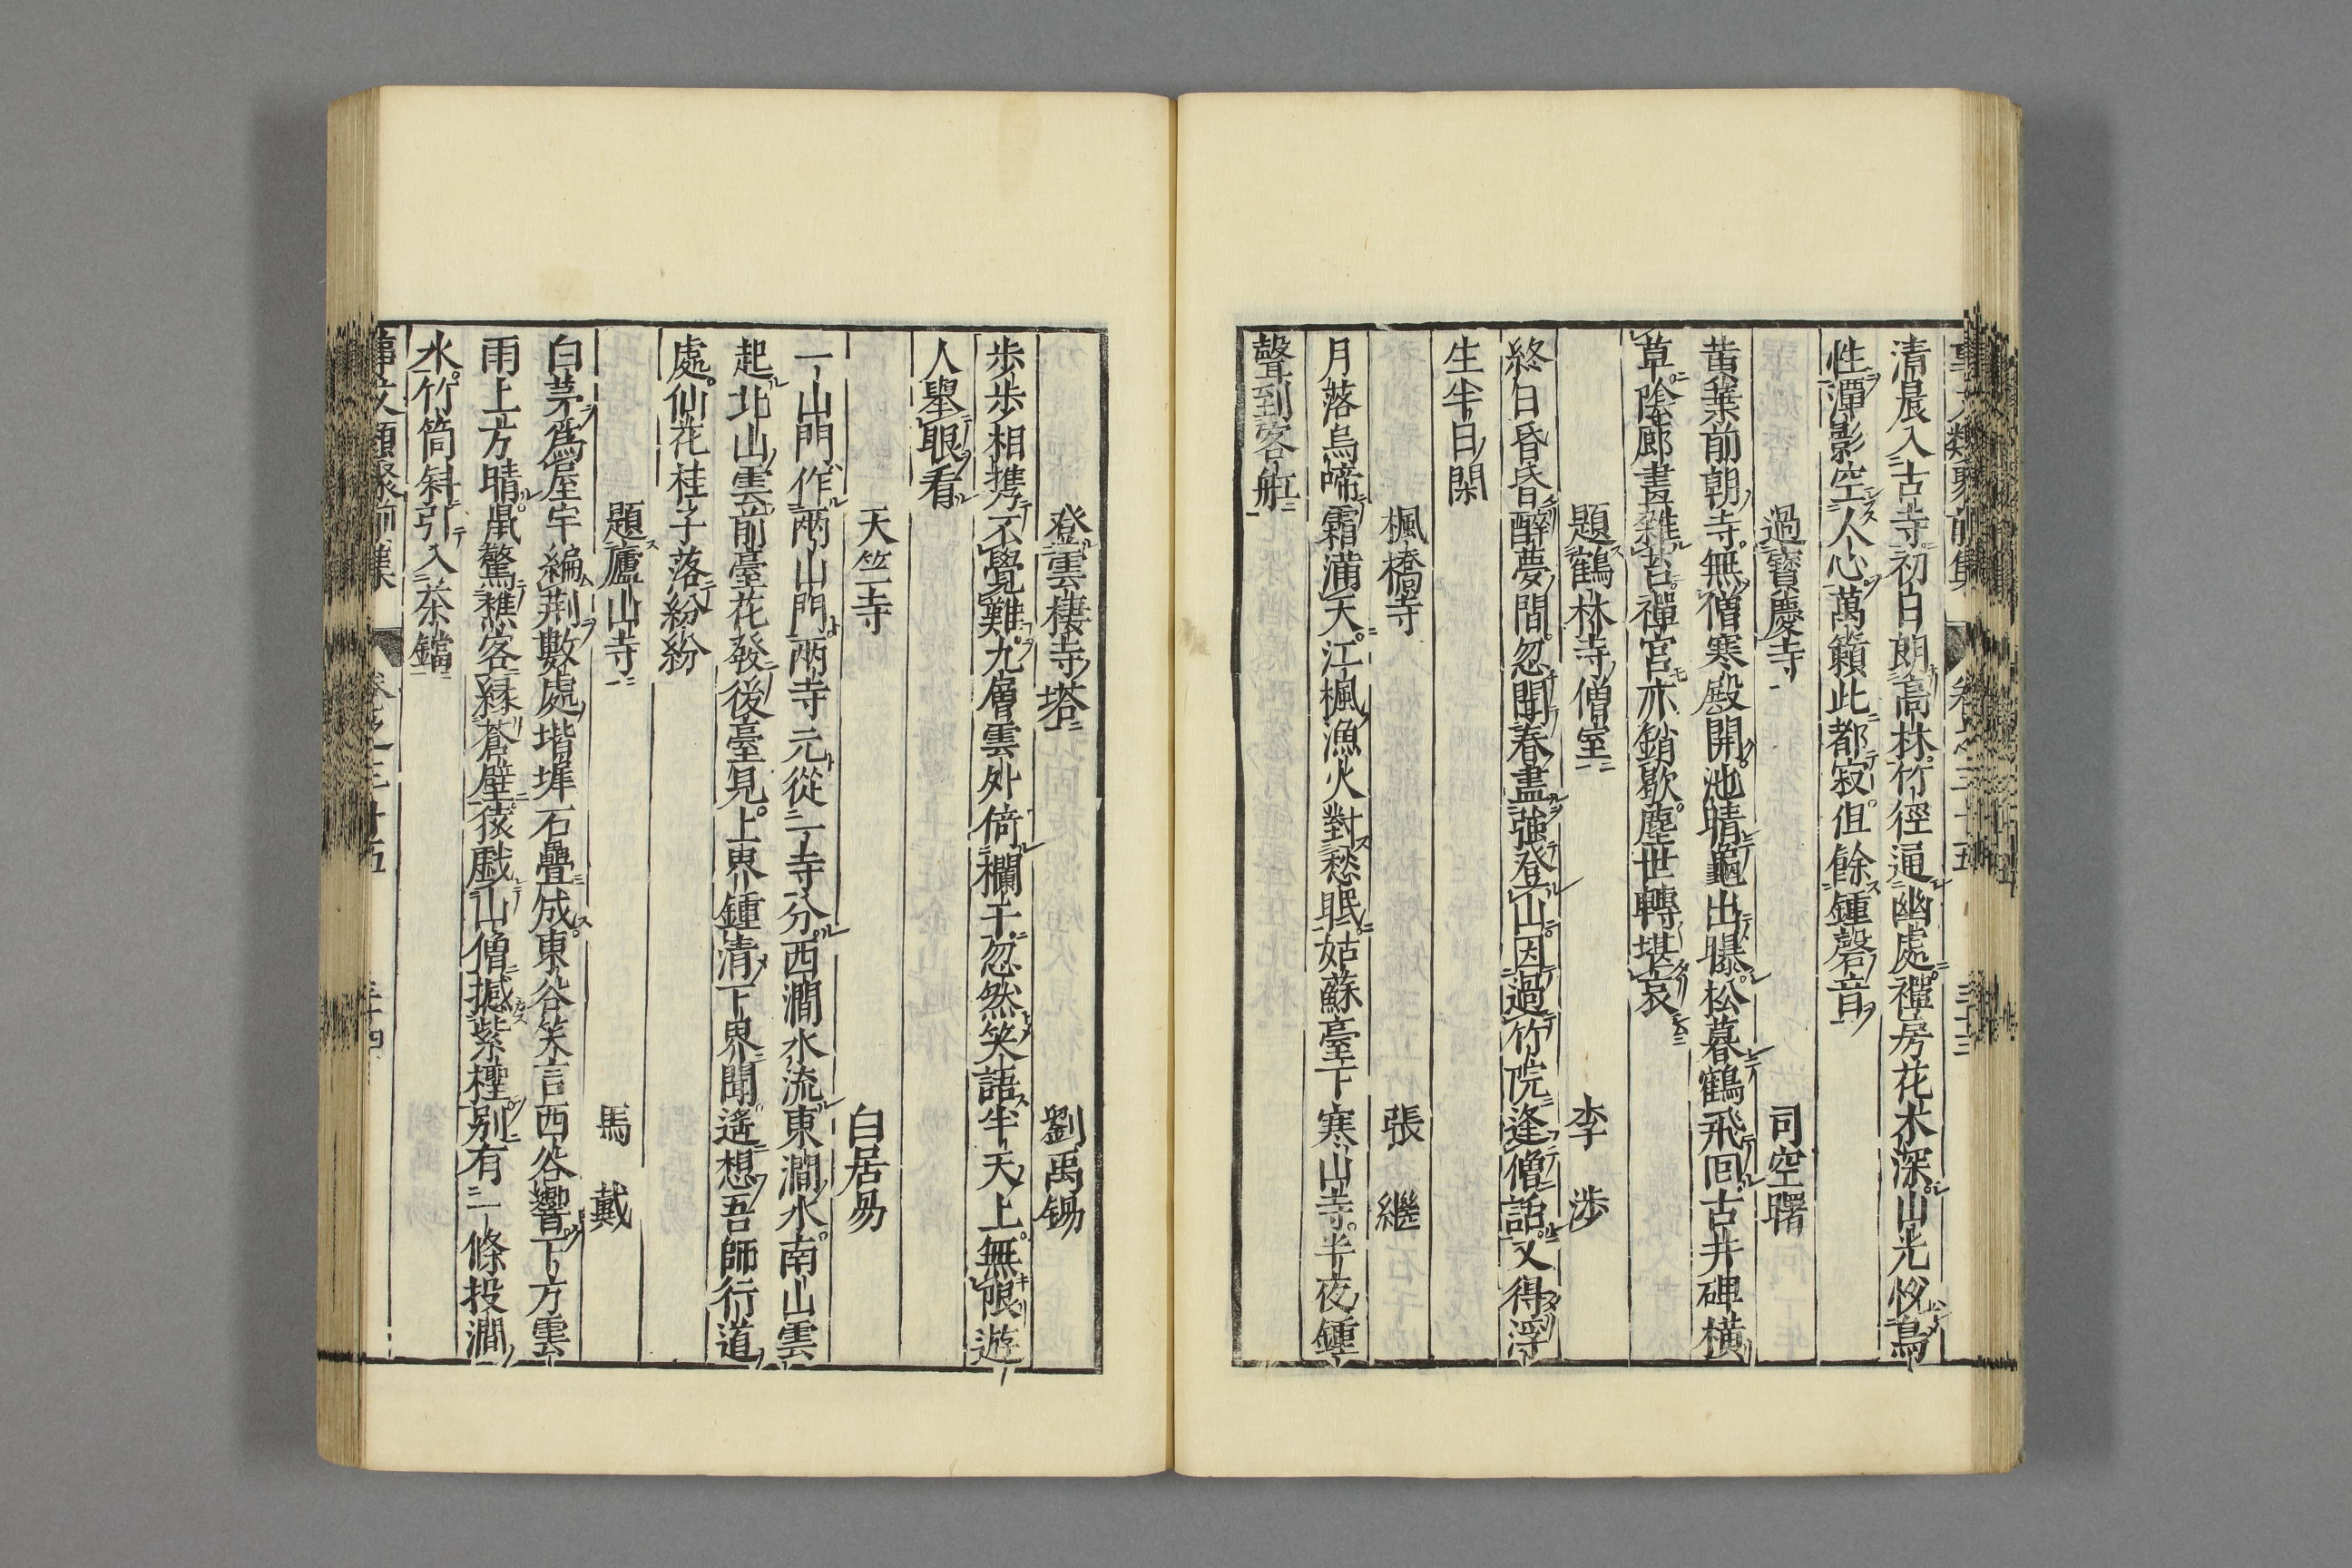 事文類聚前集 卷之三十五 三十三
清晨入古寺初白朗高林竹徑通幽處禪房花木深山光恱鳥
性潭影空人心萬籟此都寂但餘鍾磬音
過寶慶寺 司空曙
黄葉前朝寺無僧寒殿開池晴龜出曝松暮鶴飛回古井碑橫
草陰廊畫雜苔禪宮亦銷歇塵世轉堪哀
題鶴林寺僧室 李渉
終日昏昏醉夢間忽聞春盡強登山因過竹院逢僧話又得浮
生半日閑
楓橋寺 張繼
月落烏啼霜滿天江楓漁火對愁眠姑蘇臺下寒山寺半夜鍾
聲到客舡
登雲棲寺塔 劉禹錫
歩歩相攜不覺難九層雲外倚欄干忽然笑語半天上無限遊
人舉眼看
天竺寺 白居易
一山門作兩山門兩寺元從一寺分西澗水流東澗水南山雲
起北山雲前臺花發後臺見上界鍾清下界聞遙想吾師行道
處仙花桂子落紛紛
題廬山寺 馬戴
白茅爲屋宇編荆數處堦墀石疊成東谷笑言西谷響下方雲
雨上方晴鼠驚樵客緣蒼壁猿戲山僧撼紫檉別有一條投澗
水竹筒斜引入茶鐺
事文類聚前集 卷之三十五 三十四